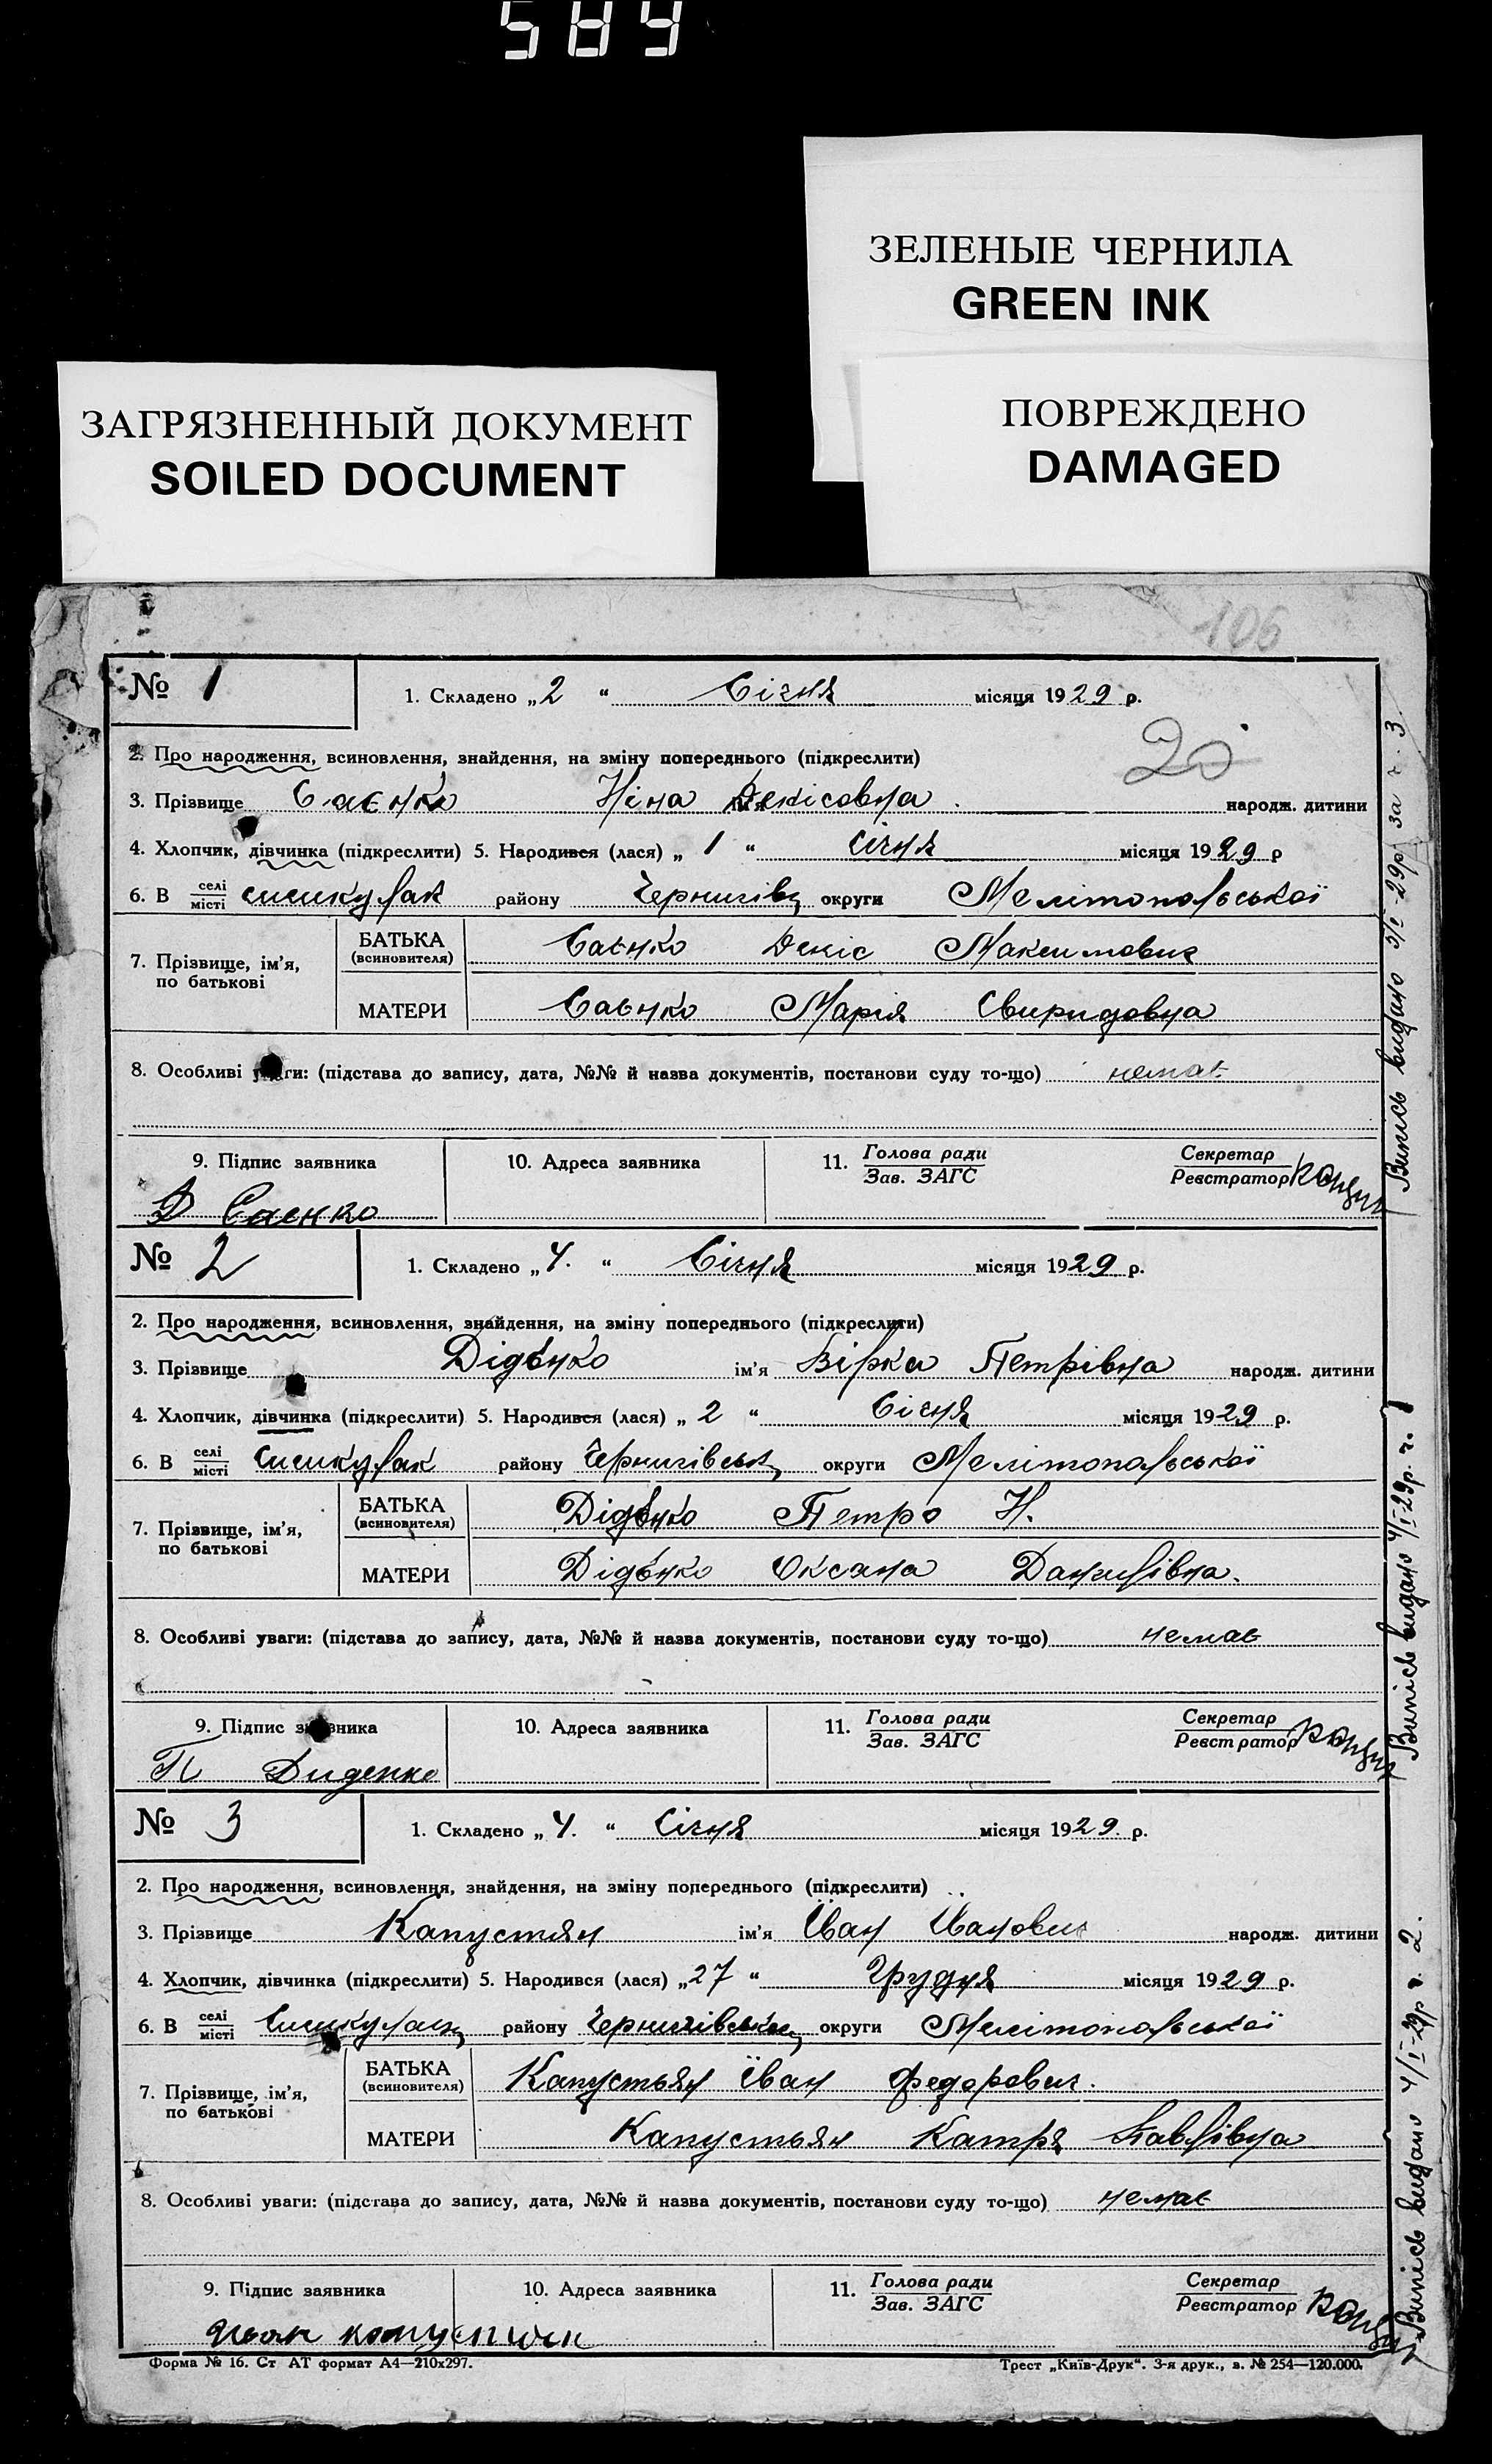 584
ЗЕЛЕНЫЕ ЧЕРНИЛА
GREEN INK
ЗАГРЯЗНЕННЫЙ ДОКУМЕНТ
SOILED DOCUMENT
ПОВРЕЖДЕНО
DAMAGED
106
№ 1
1. Складено „2 “ Січня місяця 1929 р.
2. Про народження, всиновлення, знайдення, на зміну попереднього (підкреслити)
20
3. Прізвище Саєнко Ніна Денісовна народж. дитини
4. Хлопчик, дівчинка (підкреслити) 5. Народився (лася) „ 1 “ Січня місяця 1929 р
6. В селі місті району Чернигівц округи Мелітопольської
7. Прізвище, ім’я, по батькові
БАТЬКА (всиновителя) Саєнко Деніс Максимович
МАТЕРИ Саєнко Марія Свиридовна
8. Особливі уваги: (підстава до запису, дата, №№ й назва документів, постанови суду то-що) немає
9. Підпис заявника 10. Адреса заявника 11. Голова ради Зав. ЗАГС Секретар Реєстратор
Д Саенко
Випісь видано 3/I-29р за ч. 3.
№ 2
1. Складено „4. “ Січня місяця 1929 р.
2. Про народження, всиновлення, знайдення, на зміну попереднього (підкреслити)
3. Прізвище Дідєнко ім’я Вірка Петрівна народж. дитини
4. Хлопчик, дівчинка (підкреслити) 5. Народився (лася) „ 2 “ Січня місяця 1929 р.
6. В селі місті району Чернигівськ округи Мелітопольської
7. Прізвище, ім’я, по батькові
БАТЬКА (всиновителя) Дідєнко Петро Н.
МАТЕРИ Дідєнко Оксана Данилівна.
8. Особливі уваги: (підстава до запису, дата, №№ й назва документів, постанови суду то-що) немає
9. Підпис заявника 10. Адреса заявника 11. Голова ради Зав. ЗАГС Секретар Реєстратор
П Диденко
Випісь видано 4/I-29р. ч. 1
№ 3
1. Складено „ 4. “ Січня місяця 1929. р.
2. Про народження, всиновлення, знайдення, на зміну попереднього (підкреслити)
3. Прізвище Капустян ім’я Іван Іванович народж. дитини
4. Хлопчик, дівчинка (підкреслити) 5. Народився (лася) „27 “ Грудня місяця 1929 р.
6. В селі місті району округи Мелітопольської
7. Прізвище, ім’я, по батькові
БАТЬКА (всиновителя) Капустьян Їван Федорович.
МАТЕРИ Капустьян Катря Павлівна
8. Особливі уваги: (підстава до запису, дата, №№ й назва документів, постанови суду то-що) немає
9. Підпис заявника 10. Адреса заявника 11. Голова ради Зав. ЗАГС Секретар Реєстратор
Випісь видано 4/I-29р ч. 2.
Форма № 16. Ст АТ формат А4—210х297.
Трест „Київ-Друк“. 3-я друк., з. № 254—120.000.